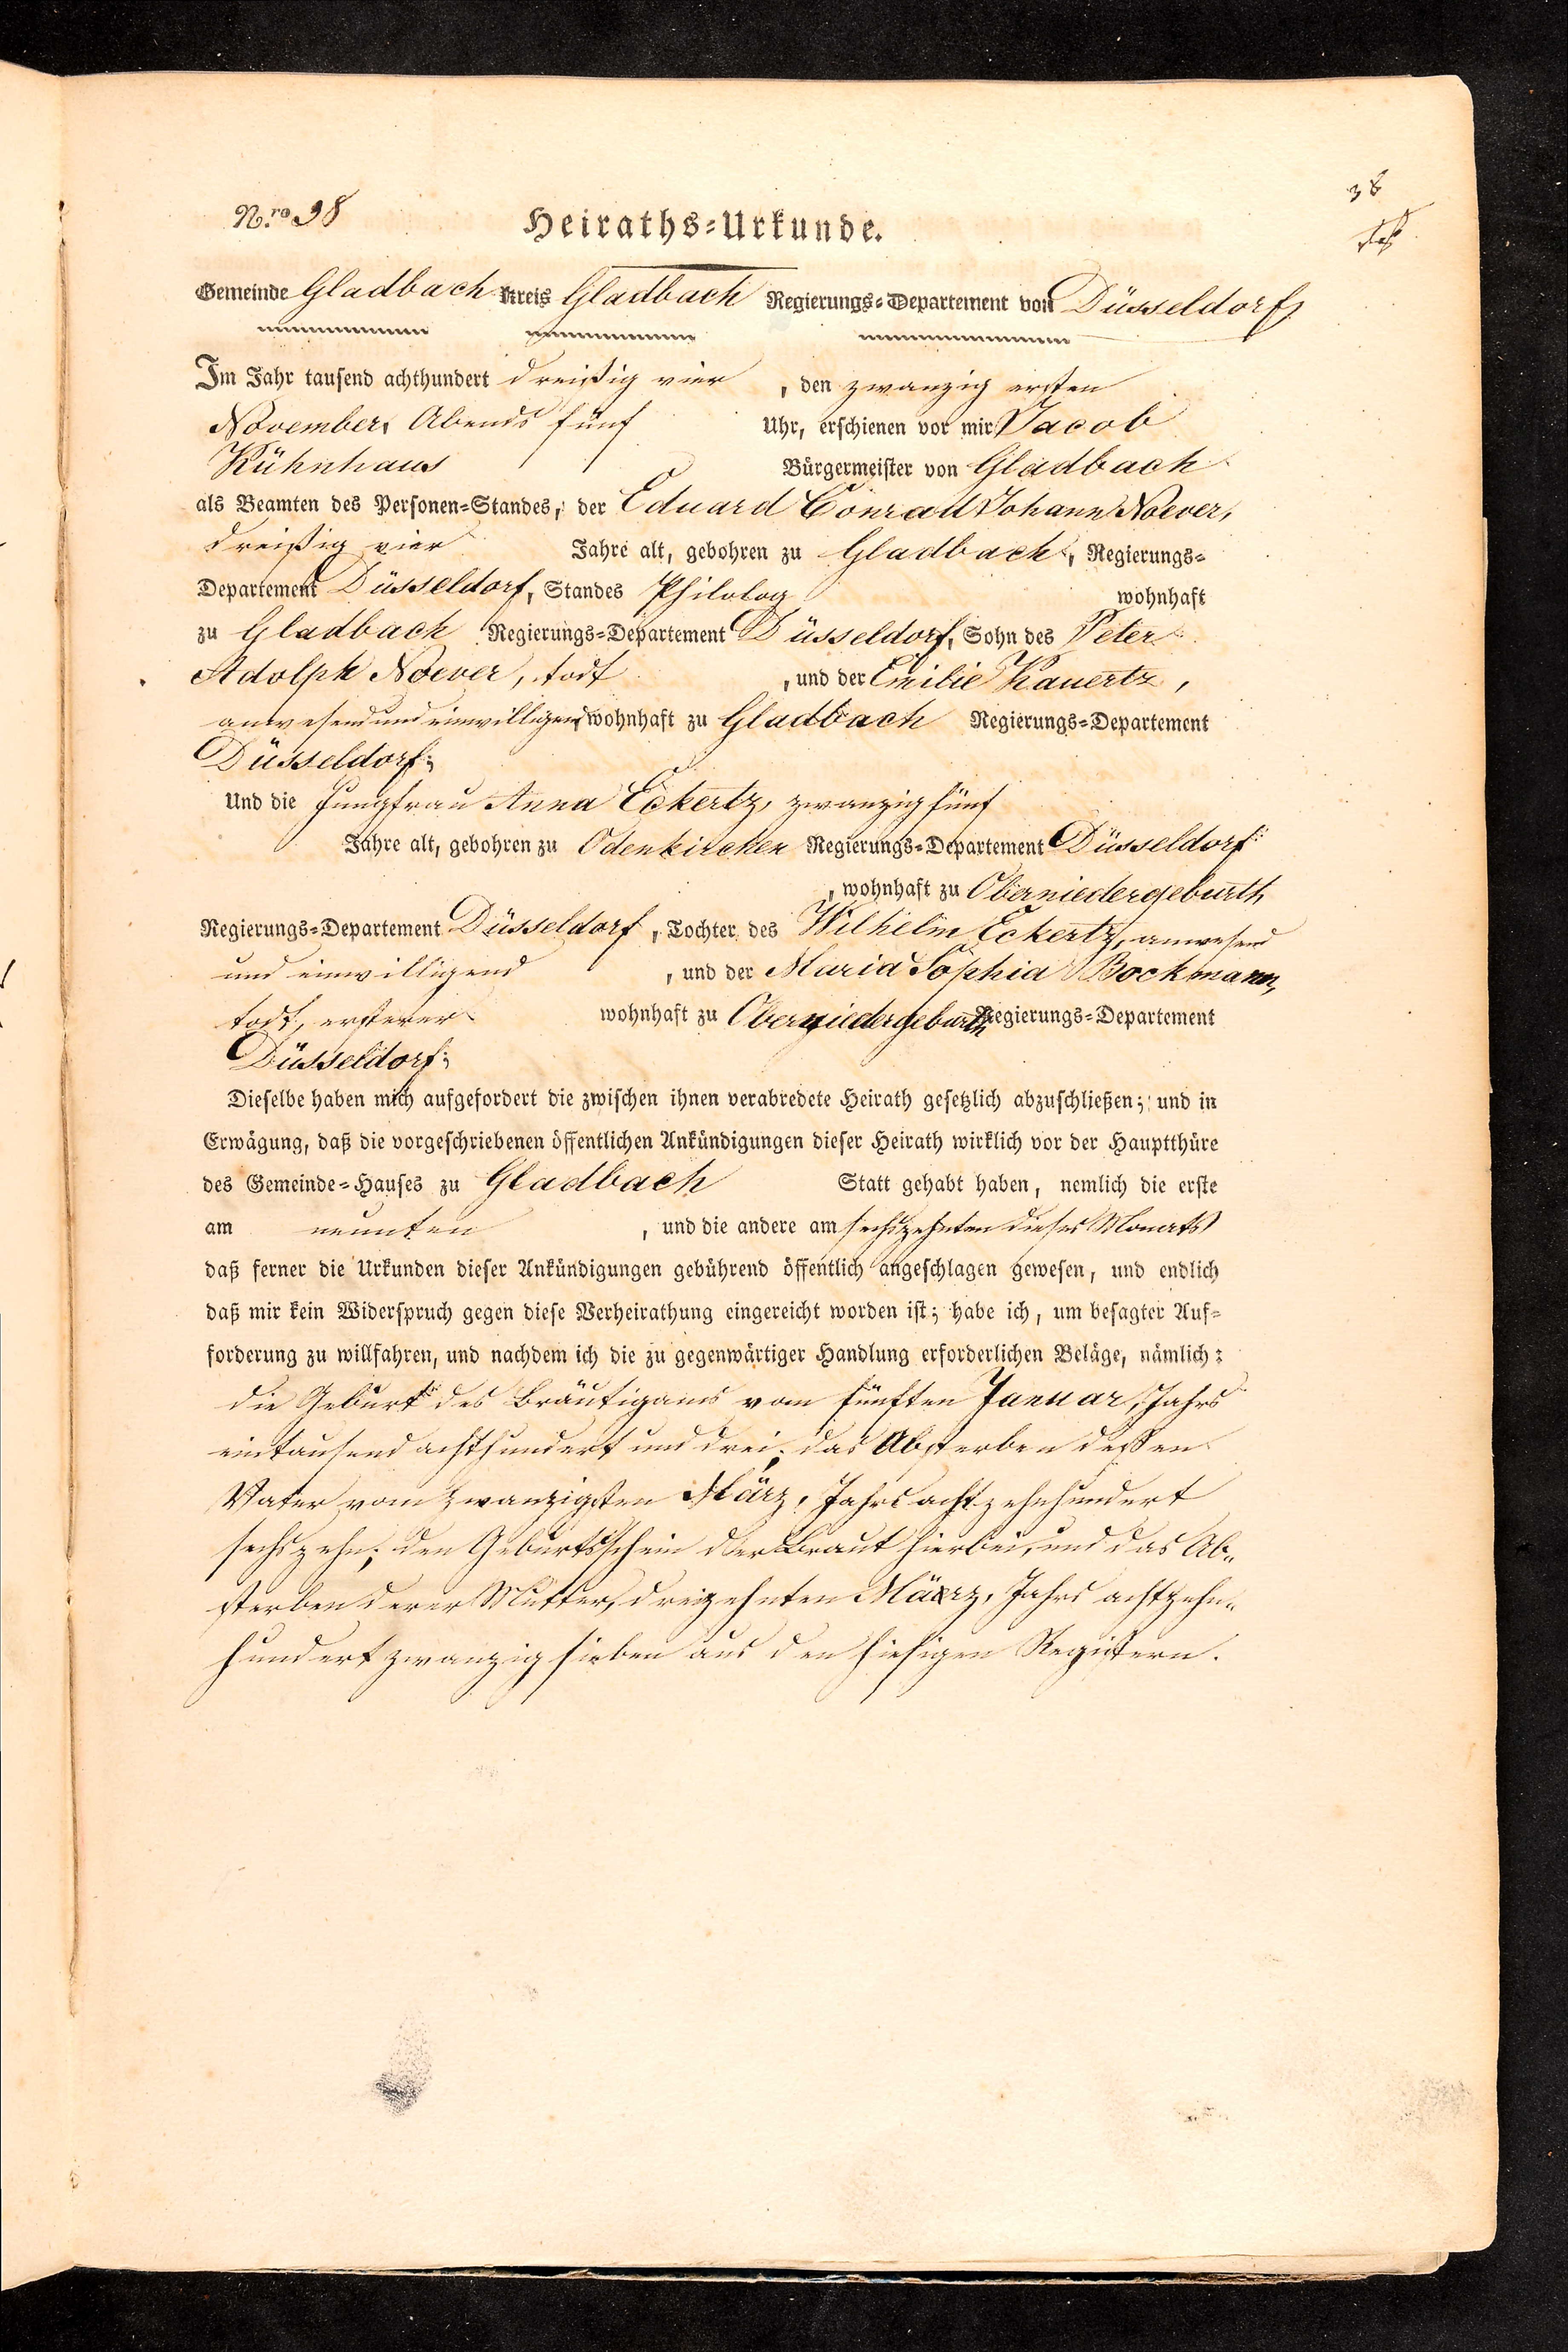 38
N.ro 38 Heiraths-Urkunde.
Gemeinde Gladbach Kreis Gladbach Regierungs-Departement von Düsseldorf
Im Jahr tausend achthundert dreißig vier, den zwanzig ersten
November, Abends fünf Uhr, erschienen vor mir Jacob
Kühnhaus Bürgermeister von Gladbach
als Beamten des Personen-Standes, der Eduard Conrad Johann Noever,
dreißig vier Jahre alt, gebohren zu Gladbach, Regierungs-
Departement Düsseldorf, Standes Philolog wohnhaft
zu Gladbach Regierungs-Departement Düsseldorf, Sohn des Peter
Adolph Noever, todt, und der Emilie Kauertz,
anwesend und einwilligend, wohnhaft zu Gladbach Regierungs-Departement
Düsseldorf;
Und die Jungfrau Anna Eckertz, zwanzig fünf
Jahre alt, gebohren zu Odenkirchen Regierungs-Departement Düsseldorf
, wohnhaft zu Oberniedergeburth,
Regierungs-Departement Düsseldorf, Tochter des Wilhelm Eckertz, anwesend
und einwilligend, und der Maria Sophia Bockmann,
todt, ersterer wohnhaft zu Oberniedergeburth Regierungs-Departement
Düsseldorf;
Dieselbe haben mich aufgefordert die zwischen ihnen verabredete Heirath gesetzlich abzuschließen; und in
Erwägung, daß die vorgeschriebenen öffentlichen Ankündigungen dieser Heirath wirklich vor der Hauptthüre
des Gemeinde-Hauses zu Gladbach Statt gehabt haben, nemlich die erste
am neunten, und die andere am sechszehnten dieses Monats
daß ferner die Urkunden dieser Ankündigungen gebührend öffentlich angeschlagen gewesen, und endlich
daß mir kein Widerspruch gegen diese Verheirathung eingereicht worden ist; habe ich, um besagter Auf-
forderung zu willfahren, und nachdem ich die zu gegenwärtiger Handlung erforderlichen Beläge, nämlich:
die Geburt des Bräutigams vom fünften Januar, Jahrs
eintausend achthundert und drei; das Absterben dessen
Vater vom zwanzigsten März, Jahrs achtzehnhundert
sechszehn; den Geburtsschein der Braut hierbei, und das Ab-
sterben derer Mutter, dreizehnten März, Jahrs achtzehn-
hundert zwanzig sieben aus den hiesigen Registern.